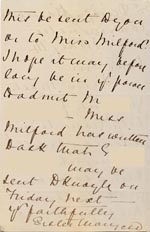 this be sent
or to Miss Milford
I hope it may before
long be in yr power
to admit M
Miss
Milford has written
back that
may be
sent on
Friday next
yr faithfully